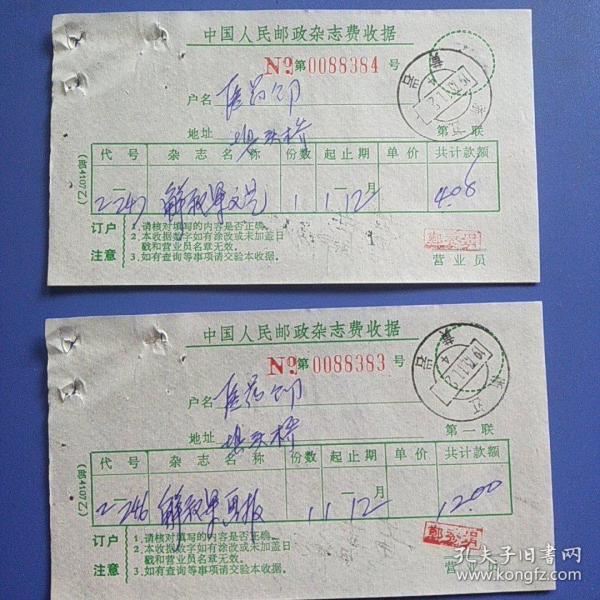 中国人民邮政杂志费收据
No 第0088384号
户名 医药部
地址 坝头桥
第一联
代号 杂志名称 份数 起止期 单价 共计款额
2-247 解放军文艺 1 1-12月 4.08
(邮4107乙)
订户注意
1.请核对填写的内容是否正确。
2.本收据数字如有涂改或未加盖日戳和营业员名章无效。
3.如有查询等事项请交验本收据。
营业员
中国人民邮政杂志费收据
No 第0088383号
户名 医药部
地址 坝头桥
第一联
代号 杂志名称 份数 起止期 单价 共计款额
2-246 解放军画报 1 1-12月 12.00
(邮4107乙)
订户注意
1.请核对填写的内容是否正确。
2.本收据数字如有涂改或未加盖日戳和营业员名章无效。
3.如有查询等事项请交验本收据。
营业员
孔夫子旧书网
www.kongfz.com